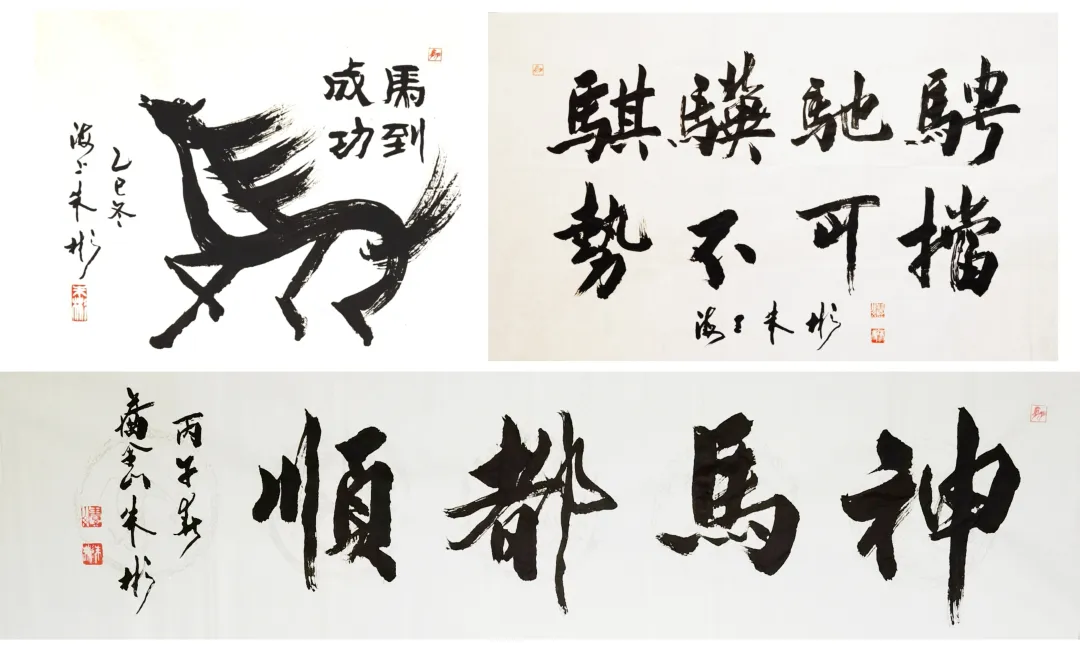 馬到
成功
乙巳冬
海上朱彬
騏驥馳騁
勢不可擋
海上朱彬
神馬都順
丙午春
朱彬